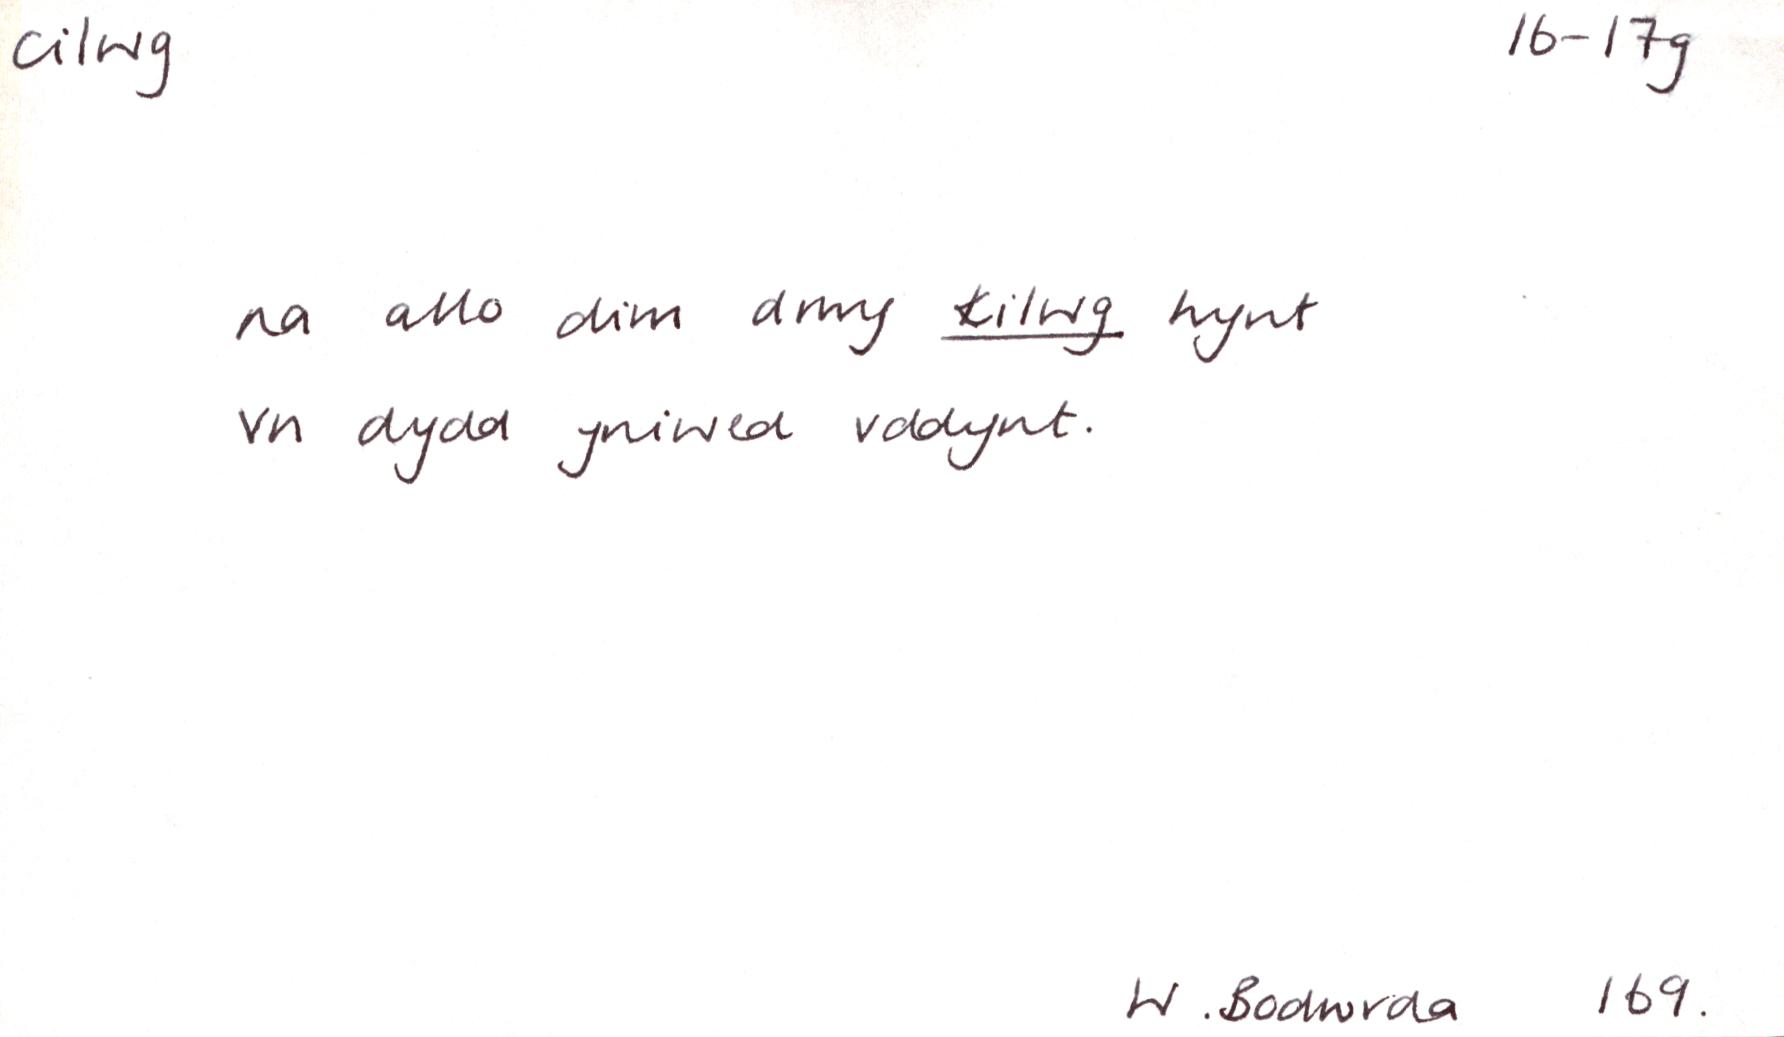 cilwg 16-17g
na allo dim drwy kilwg hynt
vn dydd yniwed vddynt.
W. Bodwrda 169.